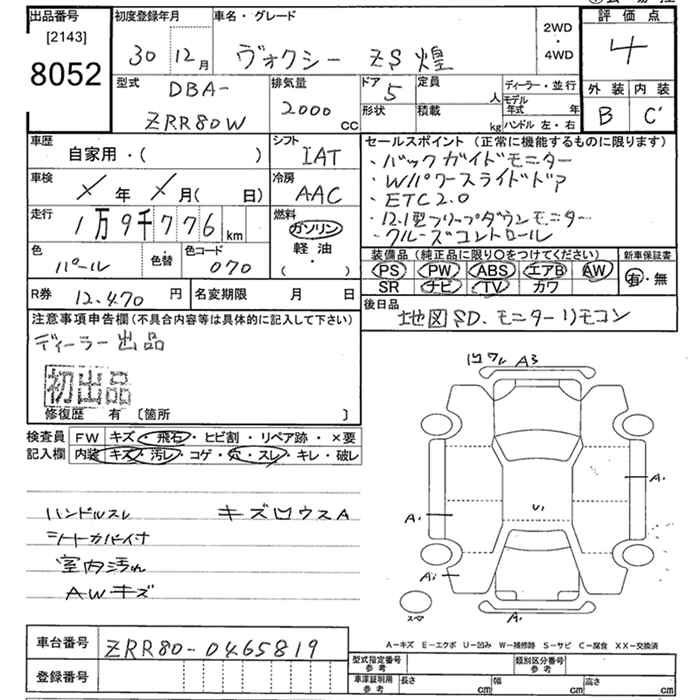 出品番号 初度登録年月 車名・グレード 評価点
[2143]
8052
30 12月 ヴォクシー ZS 煌 2WD・4WD 4
型式 DBA-
ZRR80W
排気量 2000 cc
ドア 5 定員 人
形状 積載 kg
ディーラー・並行
モデル年式 年
ハンドル 左・右
外装 内装
B C'
車歴 自家用・( )
シフト IAT
車検 X 年 X 月( 日)
冷房 AAC
走行 1万9千776 km
燃料 ガソリン
軽油
( ・ )
色 パール 色替 色コード 070
R券 12,470 円 名変期限 月 日
セールスポイント(正常に機能するものに限ります)
・バックガイドモニター
・Wパワースライドドア
・ETC2.0
・12.1型フリップダウンモニター
・クルーズコントロール
装備品(純正品に限り○をつけてください) 新車保証書
PS PW ABS エアB AW 有・無
SR ナビ TV カワ
後日品 地図SD、モニターリモコン
注意事項申告欄(不具合内容等は具体的に記入して下さい)
ディーラー出品
初出品
修復歴 有 〔箇所 〕
検査員 FW キズ・飛石・ヒビ割・リペア跡・×要
記入欄 内装 キズ・汚レ・コゲ・穴・スレ・キレ・破レ
ハンドルスレ キズ凹ウスA
シートカバー付
室内汚れ
AWキズ
凹ワレ A3
A.
U.
A.
A.
A.
スマ
A-キズ E-エクボ U-凹み W-補修跡 S-サビ C-腐食 XX-交換済
車台番号 ZRR80-0465819
登録番号
型式指定番号 参考 類別区分番号 参考
車庫証明用 参考 長さ cm 幅 cm 高さ cm